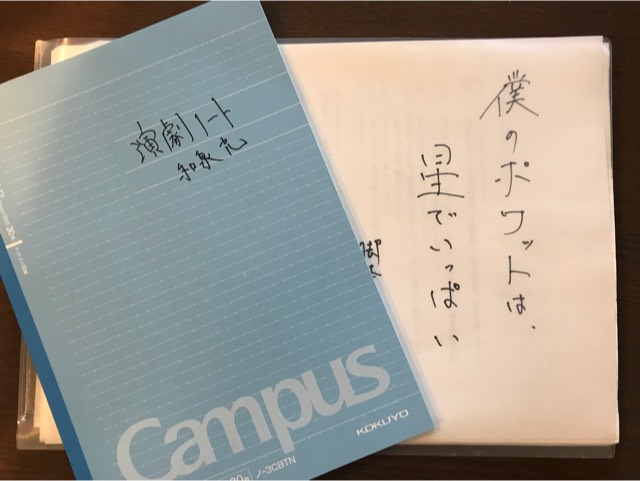 演劇ノート
和泉
Campus
KOKUYO
ノ-3CBTN
僕のポケットは、
星でいっぱい
脚